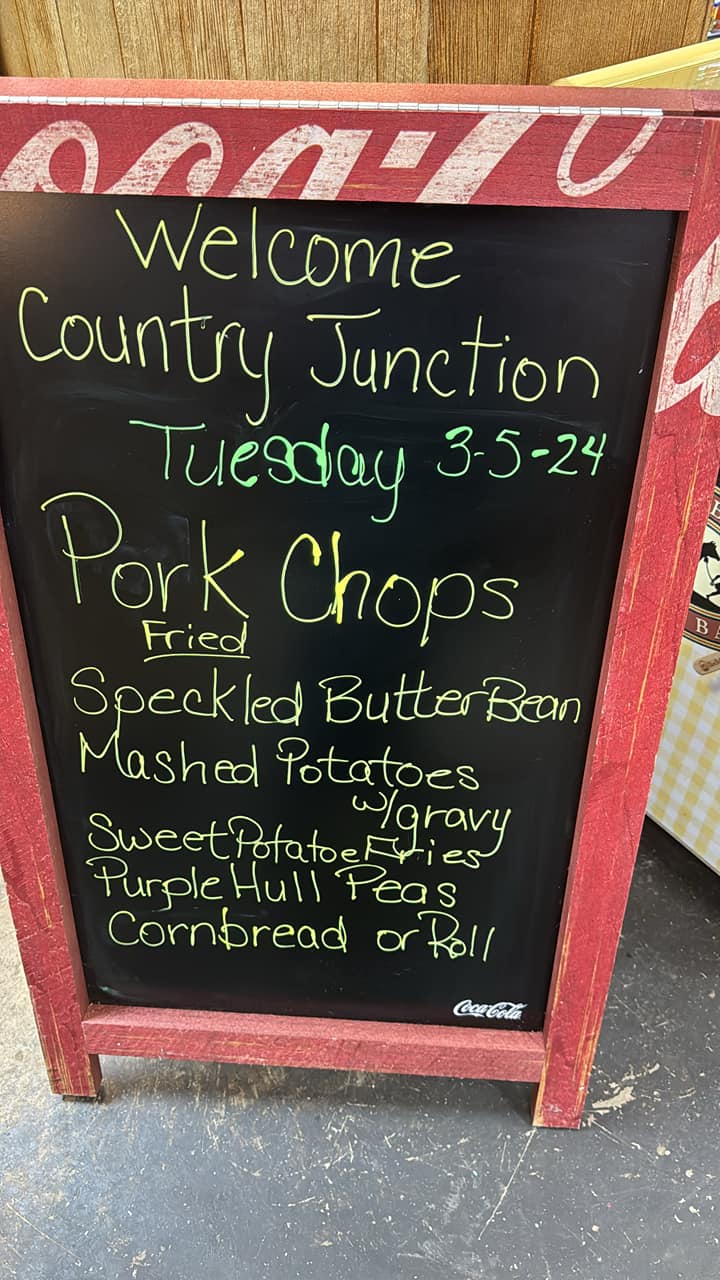 Coca-Co
Welcome
Country Junction
Tuesday 3-5-24
Pork Chops
Fried
Speckled Butter Bean
Mashed Potatoes
w/gravy
Sweet Potatoe Fries
Purple Hull Peas
Cornbread or Roll
Coca-Cola